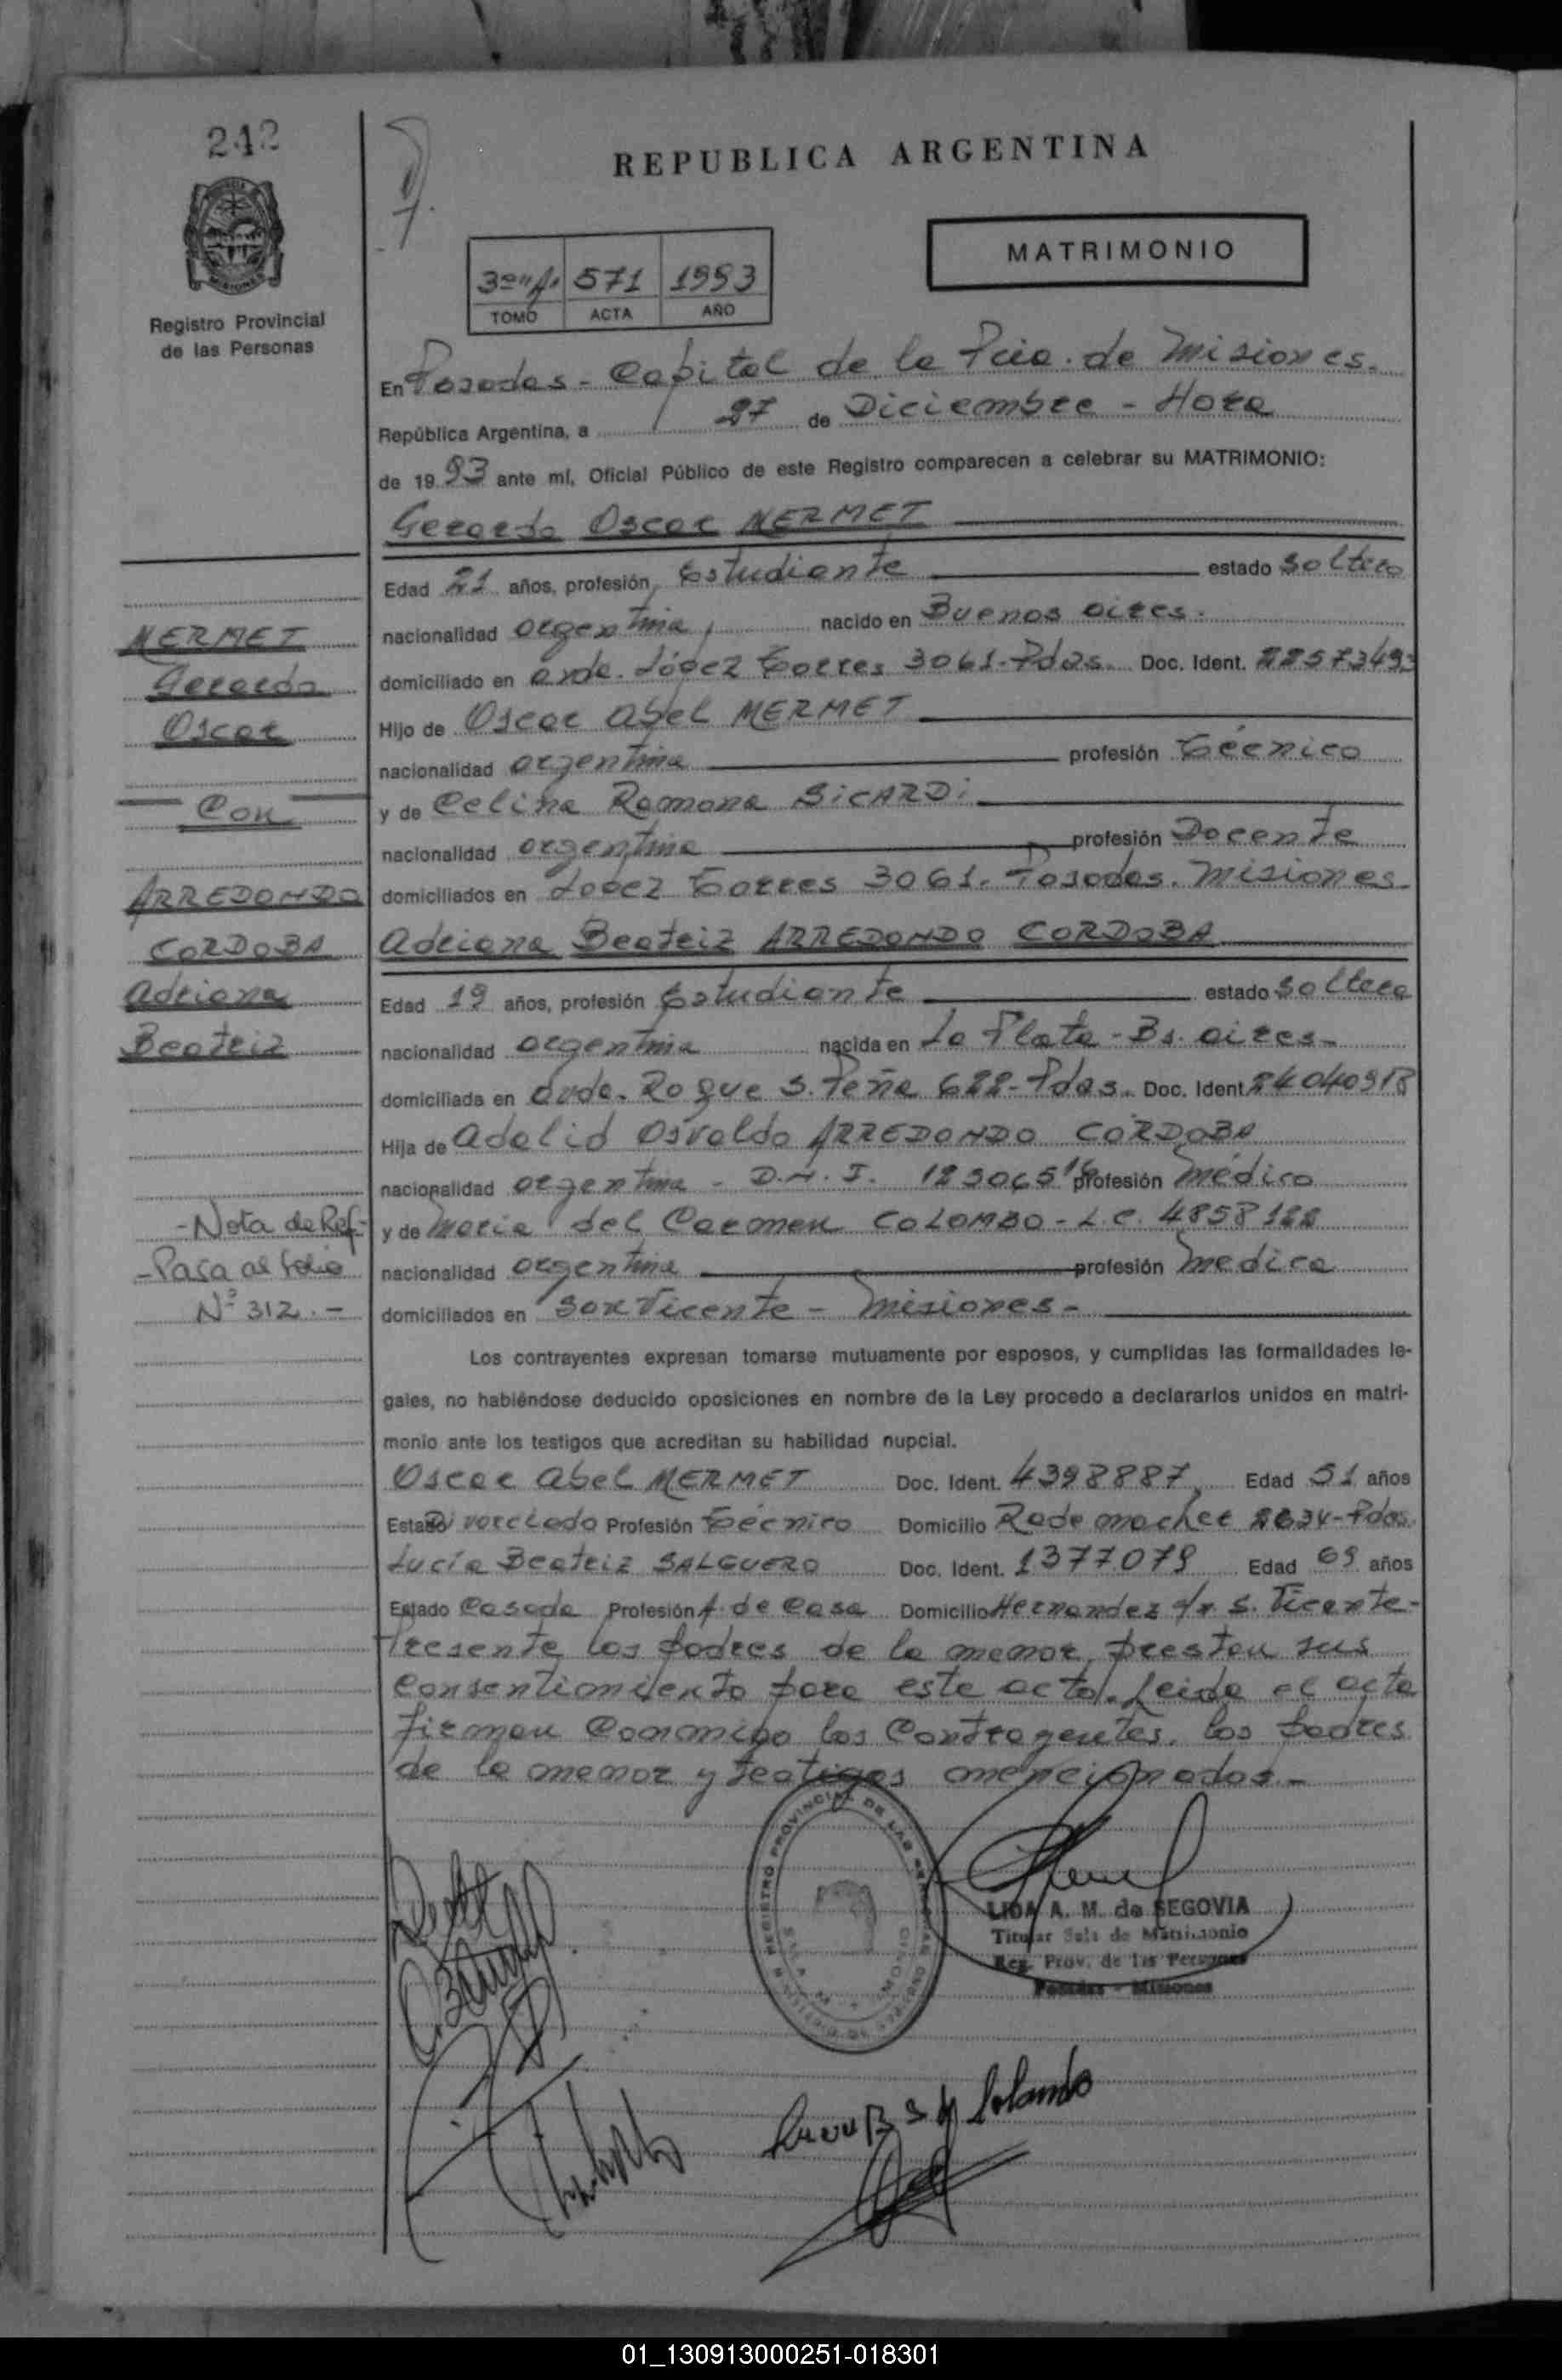 242
REPUBLICA ARGENTINA
MATRIMONIO
571 1993
TOMO ACTA AÑO
Registro Provincial
de las Personas
En Posadas - Capital de la Pcia. de Misiones.
República Argentina, a 27 de Diciembre - Hora
de 1993 ante mí, Oficial Público de este Registro comparecen a celebrar su MATRIMONIO:
Gerardo Oscar MERMET
Edad 21 años, profesión, Estudiante estado Soltero
nacionalidad argentina, nacido en Buenos Aires.
domiciliado en Avda. López Torres 3061-Pdas. Doc. Ident. 22573493
Hijo de Oscar Abel MERMET
nacionalidad argentina profesión Técnico
y de Celina Ramona SICARDI
nacionalidad argentina profesión Docente
domiciliados en López Torres 3061. Posadas. Misiones
Adriana Beatriz ARREDONDO CORDOBA
Edad 19 años, profesión Estudiante estado Soltera
nacionalidad argentina nacida en La Plata - Bs. Aires-
domiciliada en Avda. Roque S. Peña 622-Pdas. Doc. Ident. 24040918
Hija de Adalid Osvaldo ARREDONDO CORDOBA
nacionalidad argentina - D.N.I. profesión Médico
y de María del Carmen COLOMBO - L.C. 4858122
nacionalidad argentina profesión Medica
domiciliados en San Vicente - Misiones-
MERMET
Gerardo
Oscar
Con
ARREDONDO
CORDOBA
Adriana
Beatriz
-Nota de Ref-
-Pasa al folio
Nº 312.-
Los contrayentes expresan tomarse mutuamente por esposos, y cumplidas las formalidades le-
gales, no habiéndose deducido oposiciones en nombre de la Ley procedo a declararlos unidos en matri-
monio ante los testigos que acreditan su habilidad nupcial.
Oscar Abel MERMET Doc. Ident. 4398887 Edad 51 años
Estado Divorciado Profesión Técnico Domicilio Rademacher 2634-Pdas.
Lucía Beatriz SALGUERO Doc. Ident. 1377.079 Edad 69 años
Estado Casada Profesión A. de Casa Domicilio Hernandez s/n S. Vicente-
Presente los padres de la menor, prestan sus
consentimiento para este acto. Leida el acta
firman conmigo los contrayentes, los padres
de la menor y testigos mencionados.-
REGISTRO PROVINCIAL DE LAS PERSONAS
LIDA A. M. de SEGOVIA
Titular Sala de Matrimonio
Reg. Prov. de las Personas
Posadas - Misiones
01_130913000251-018301